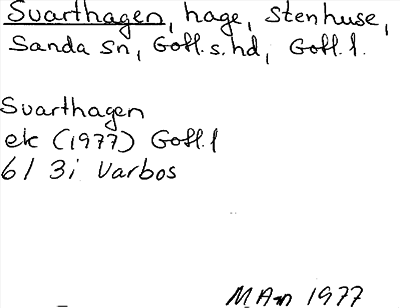 Svarthagen, hage, Stenhuse,
Sanda sn, Gotl. s. hd, Gotl. l.
Svarthagen
ek (1977) Gotl. l
6I 3i Varbos
MAn 1977